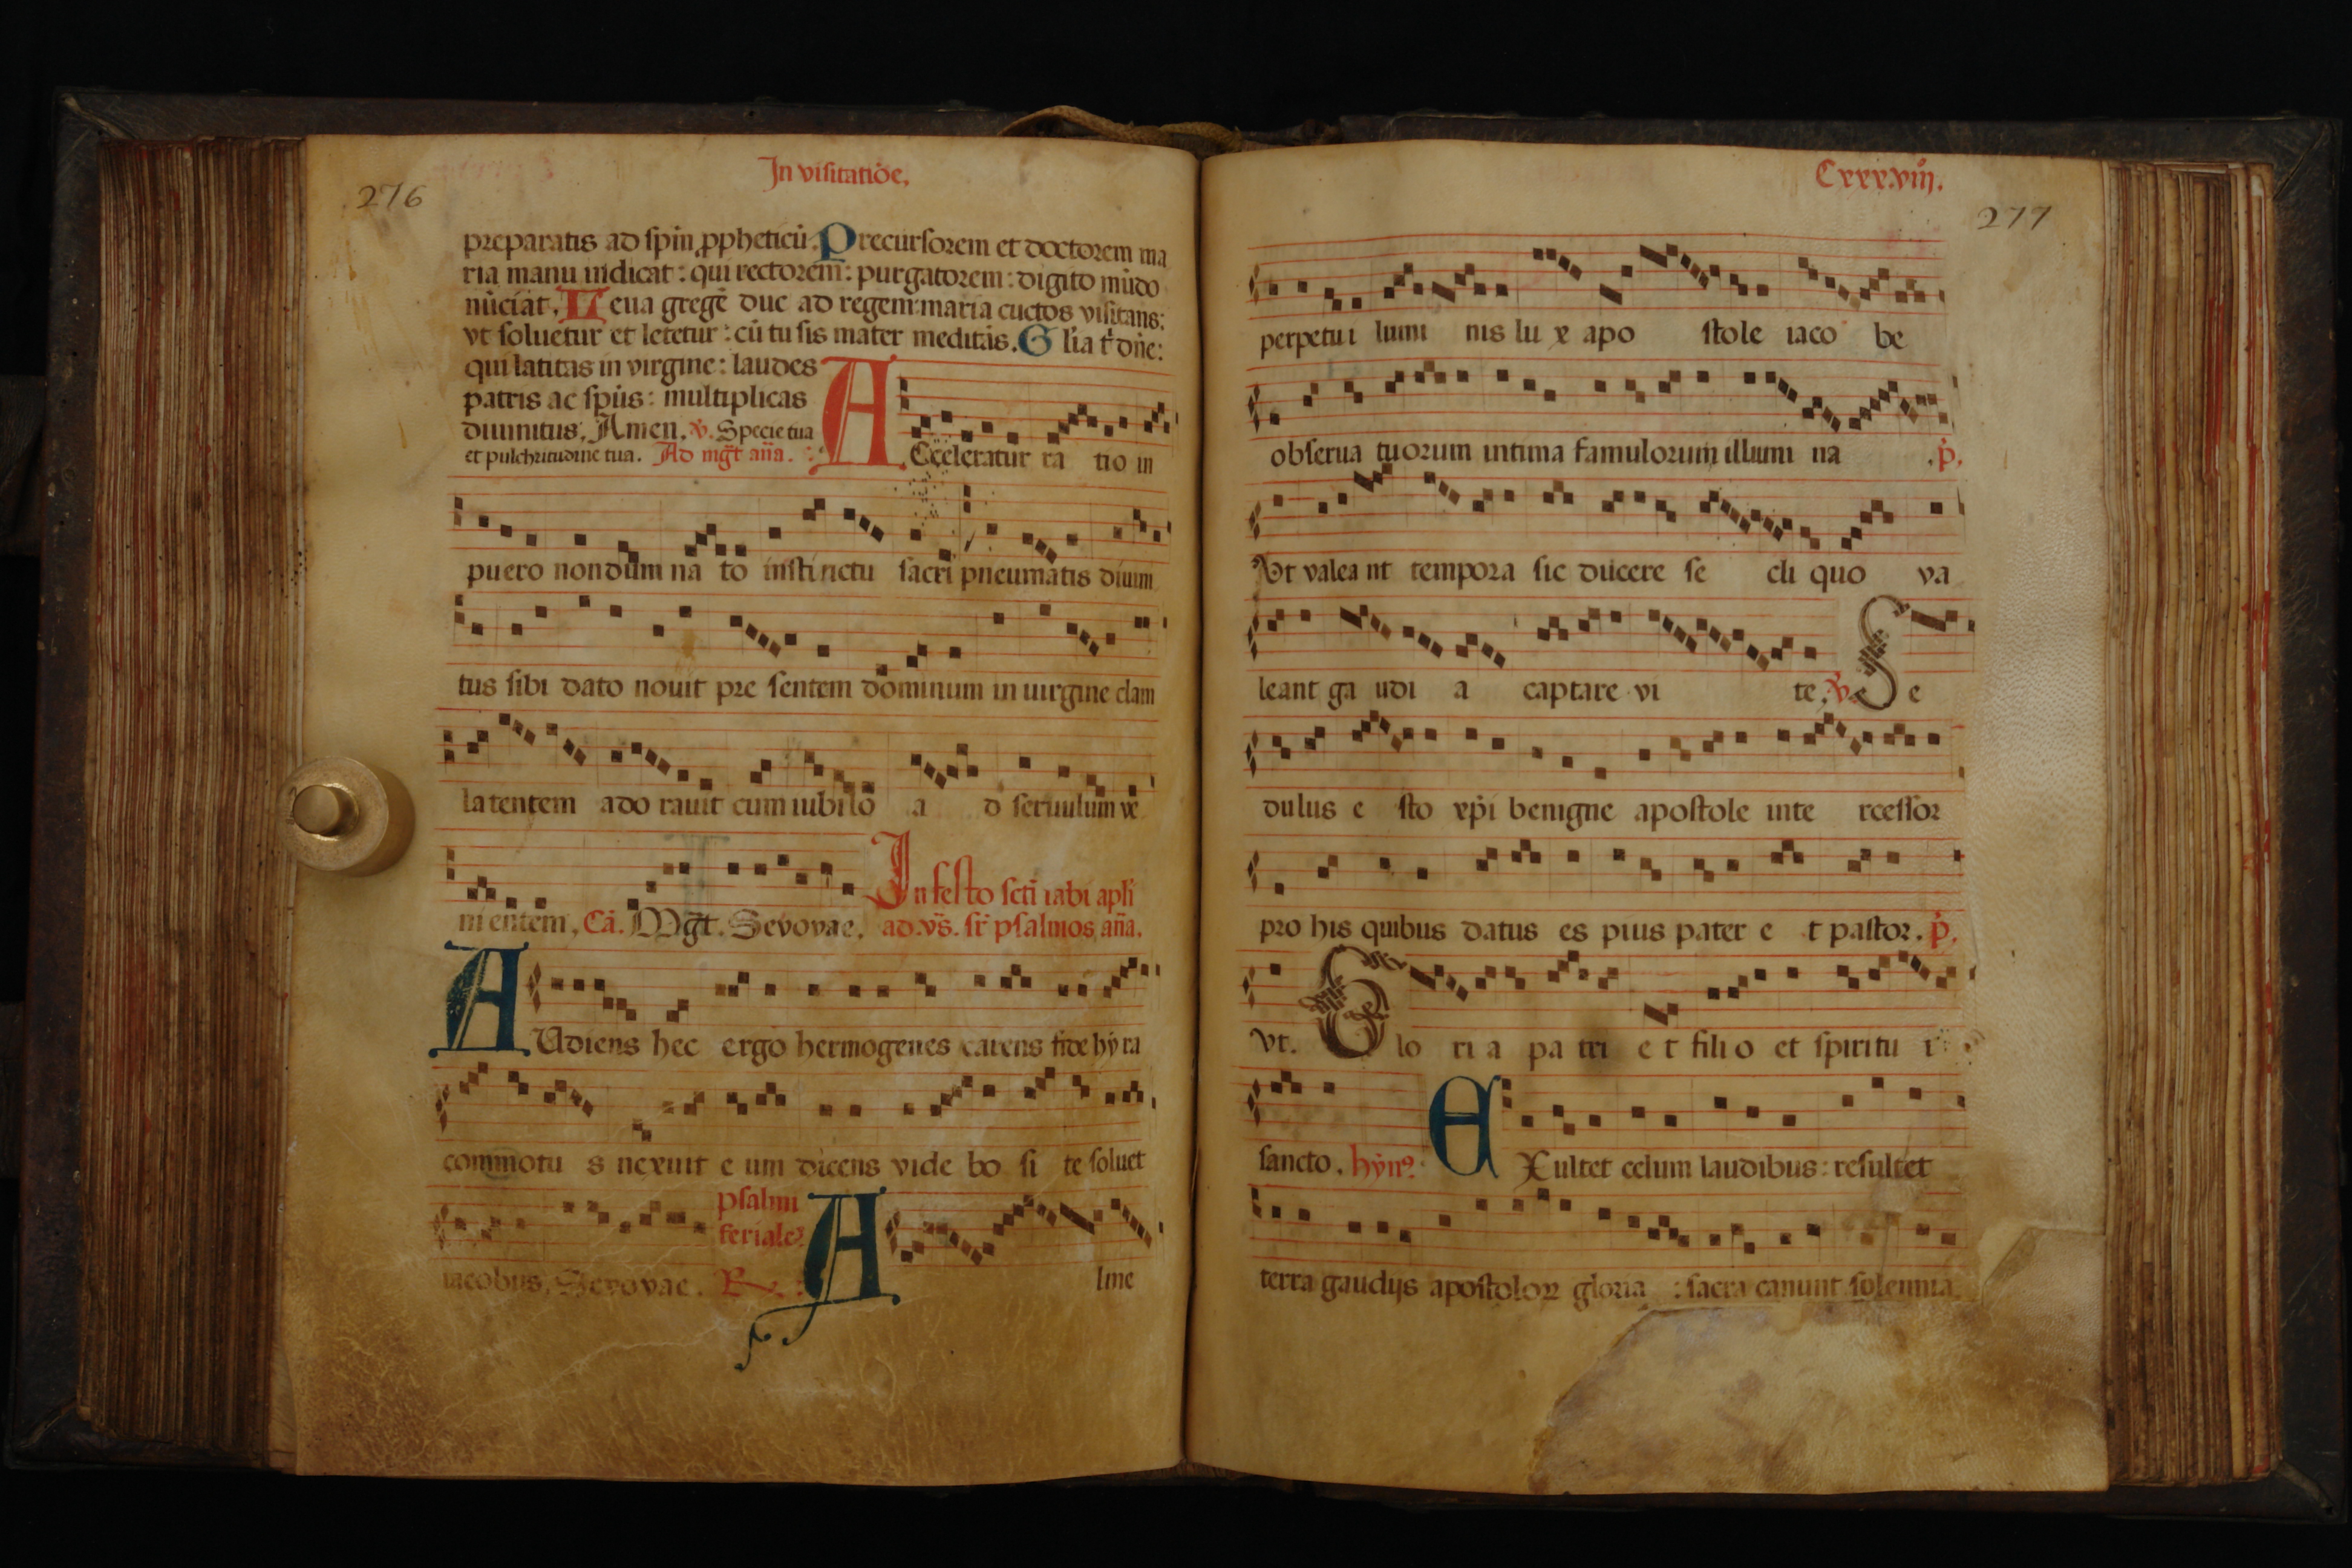 In visitatiōe,
276
preparatis ad spīn ꝓpheticū. Precursorem et doctorem ma
ria manu indicat: qui rectorem: purgatorem: digito mūdo
nūciat. Leua gregē duc ad regem: maria cūctos visitans:
vt soluetur et letetur: cū tu sis mater meditās. Glīa t̄ dn̄e:
qui latitas in virgine: laudes
patris ac sp̄ūs: multiplicas
diuinitus. Amen. v̄. Specie tua
et pulchritudine tua. Ad mḡt an̄a.
ACceleratur ra tio in
puero nondum na to instinctu sacri pneumatis diuini
tus sibi dato nouit pre sentem dominum in uirgine clam
latentem ado rauit cum iubilo a d seruulum ve
ni entem, Cā. Mḡt. Sevovae. In festo scti iabi apli
ad .vs̄. sr̄ psalmos an̄a.
AUdiens hec ergo hermogenes carens fide hy ra
commotu s nexuit e um dicens vide bo si te soluet
iacobus, Sevovae. psalmi
feriales
R. Alme
Cxxx.viij.
277
perpetui lumi nis lu x apo stole iaco be
obserua tuorum intima famulorum illumi na .p̄.
Vt valea nt tempora sic ducere se cli quo va
leant ga udi a captare vi te. v̄. Se
dulus e sto xp̄i benigne apostole inte rcessor
pro his quibus datus es pius pater e t pastor. p̄.
vt. Glo ri a pa tri e t fili o et spiritu i
sancto. hym̄ EXultet celum laudibus: resultet
terra gaudijs apostoloꝝ gloria : sacra canunt solennia.